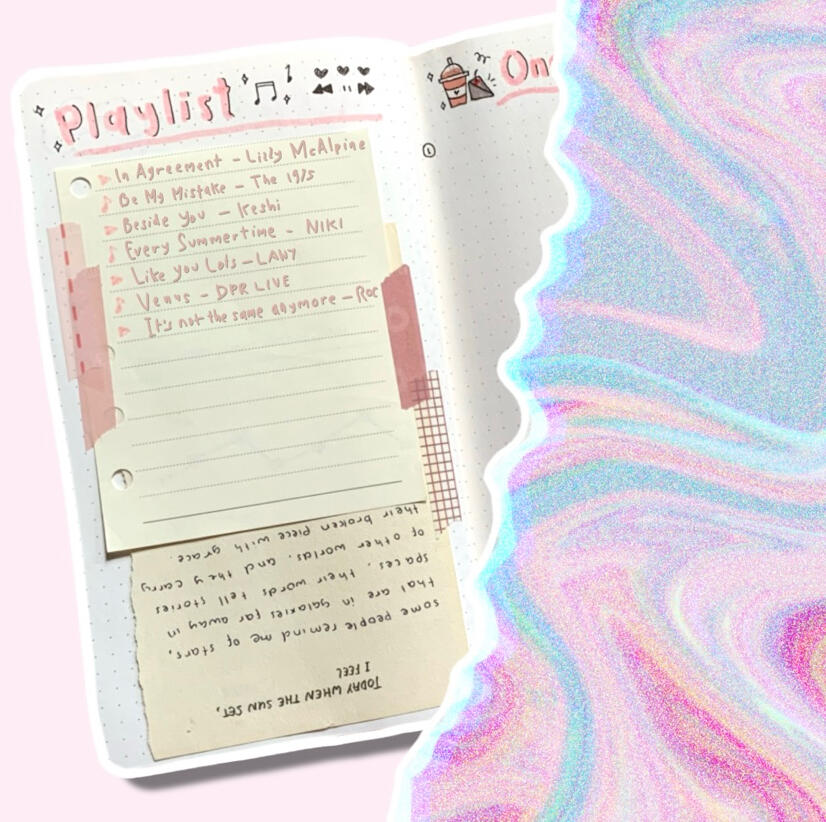 Playlist
In Agreement - Lizzy McAlpine
Be My Mistake - The 1975
Beside you - Keshi
Every Summertime - NIKI
Like you Lots - LANY
Venus - DPR LIVE
It's not the same anymore - Rac
On
TODAY WHEN THE SUN SET,
I FEEL
some people remind me of stars,
that are in galaxies far away in
spaces. their words tell stories
of other worlds. and they carry
their broken piece with grace.